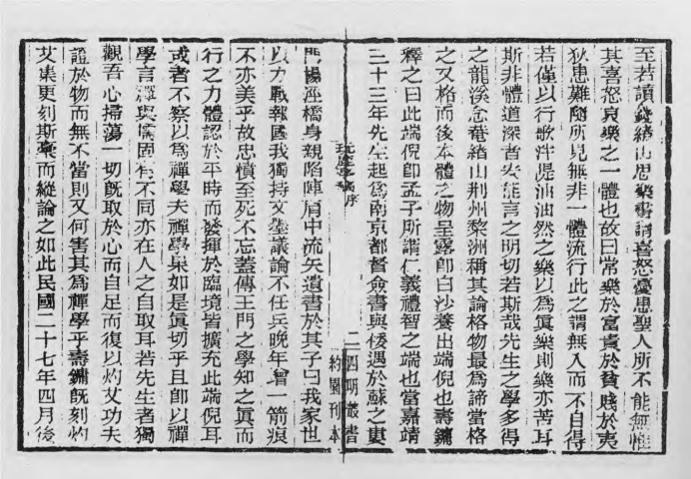 至若讀錢緒山思樂書謂喜怒憂患聖人所不能無惟
其喜怒哀樂之一體也故曰常樂於富貴於貧賤於夷
狄患難隨所見無非一體流行此之謂無入而不自得
若僅以行歌泮渙油油然之樂以為眞樂則樂亦苦耳
斯非體道深者尖能言之明切若斯哉先生之學多得
之龍溪念菴緒山荆州黎洲稱其論格物最為諦當格
之又格而後本體之物呈露卽白沙養出端倪也壽鏞
釋之曰此端倪卽孟子所謂仁義禮智之端也當嘉靖
三十三年先生起爲南京都督僉書與倭遇於蘇之婁
序
二
四明叢書
約園刊本
門楊涇橋身親陷陣肩中流矢遺書於其子曰我家世
以力戰報國我獨持文墨議論不任兵晚年增一箭痕
不亦美乎故忠憤至死不忘蓋傳王門之學知之眞而
行之力體認於平時而發揮於臨境皆擴充此端倪耳
或者不察以爲禪學夫禪學果如是眞切乎且卽以禪
學言禪與儒固有不同亦在人之自取耳若先生者獨
觀吾心掃蕩一切旣取於心而自足而復以灼艾功夫
證於物而無不當則又何害其爲禪學乎壽鏞旣刻灼
艾集更刻斯稾而縱論之如此民國二十七年四月後